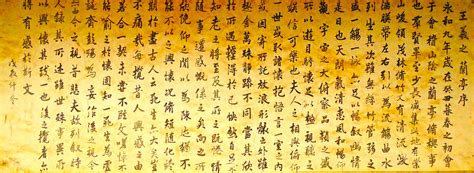 王羲之蘭亭序
永和九年歲在癸丑暮春之初會
于會稽山陰之蘭亭脩禊事
也羣賢畢至少長咸集此地有崇
山峻領茂林脩竹又有清流激湍
映帶左右引以為流觴曲水
列坐其次雖無絲竹管弦之
盛一觴一詠亦足以暢敘幽情
是日也天朗氣清惠風和暢仰
觀宇宙之大俯察品類之盛
所以遊目騁懷足以極視聽之
娛信可樂也夫人之相與俯仰
一世或取諸懷抱悟言一室之內
或因寄所託放浪形骸之外雖
趣舍萬殊靜躁不同當其欣
於所遇暫得於己快然自足不
知老之將至及其所之既倦情
隨事遷感慨係之矣向之所欣
俛仰之間以為陳迹猶不
能不以之興懷況脩短隨化終
期於盡古人云死生亦大矣豈
不痛哉每攬昔人興感之由
若合一契未嘗不臨文嗟悼不
能喻之於懷固知一死生為虛
誕齊彭殤為妄作後之視今
亦由今之視昔悲夫故列敘時
人錄其所述雖世殊事異所
以興懷其致一也後之攬者亦將
有感於斯文